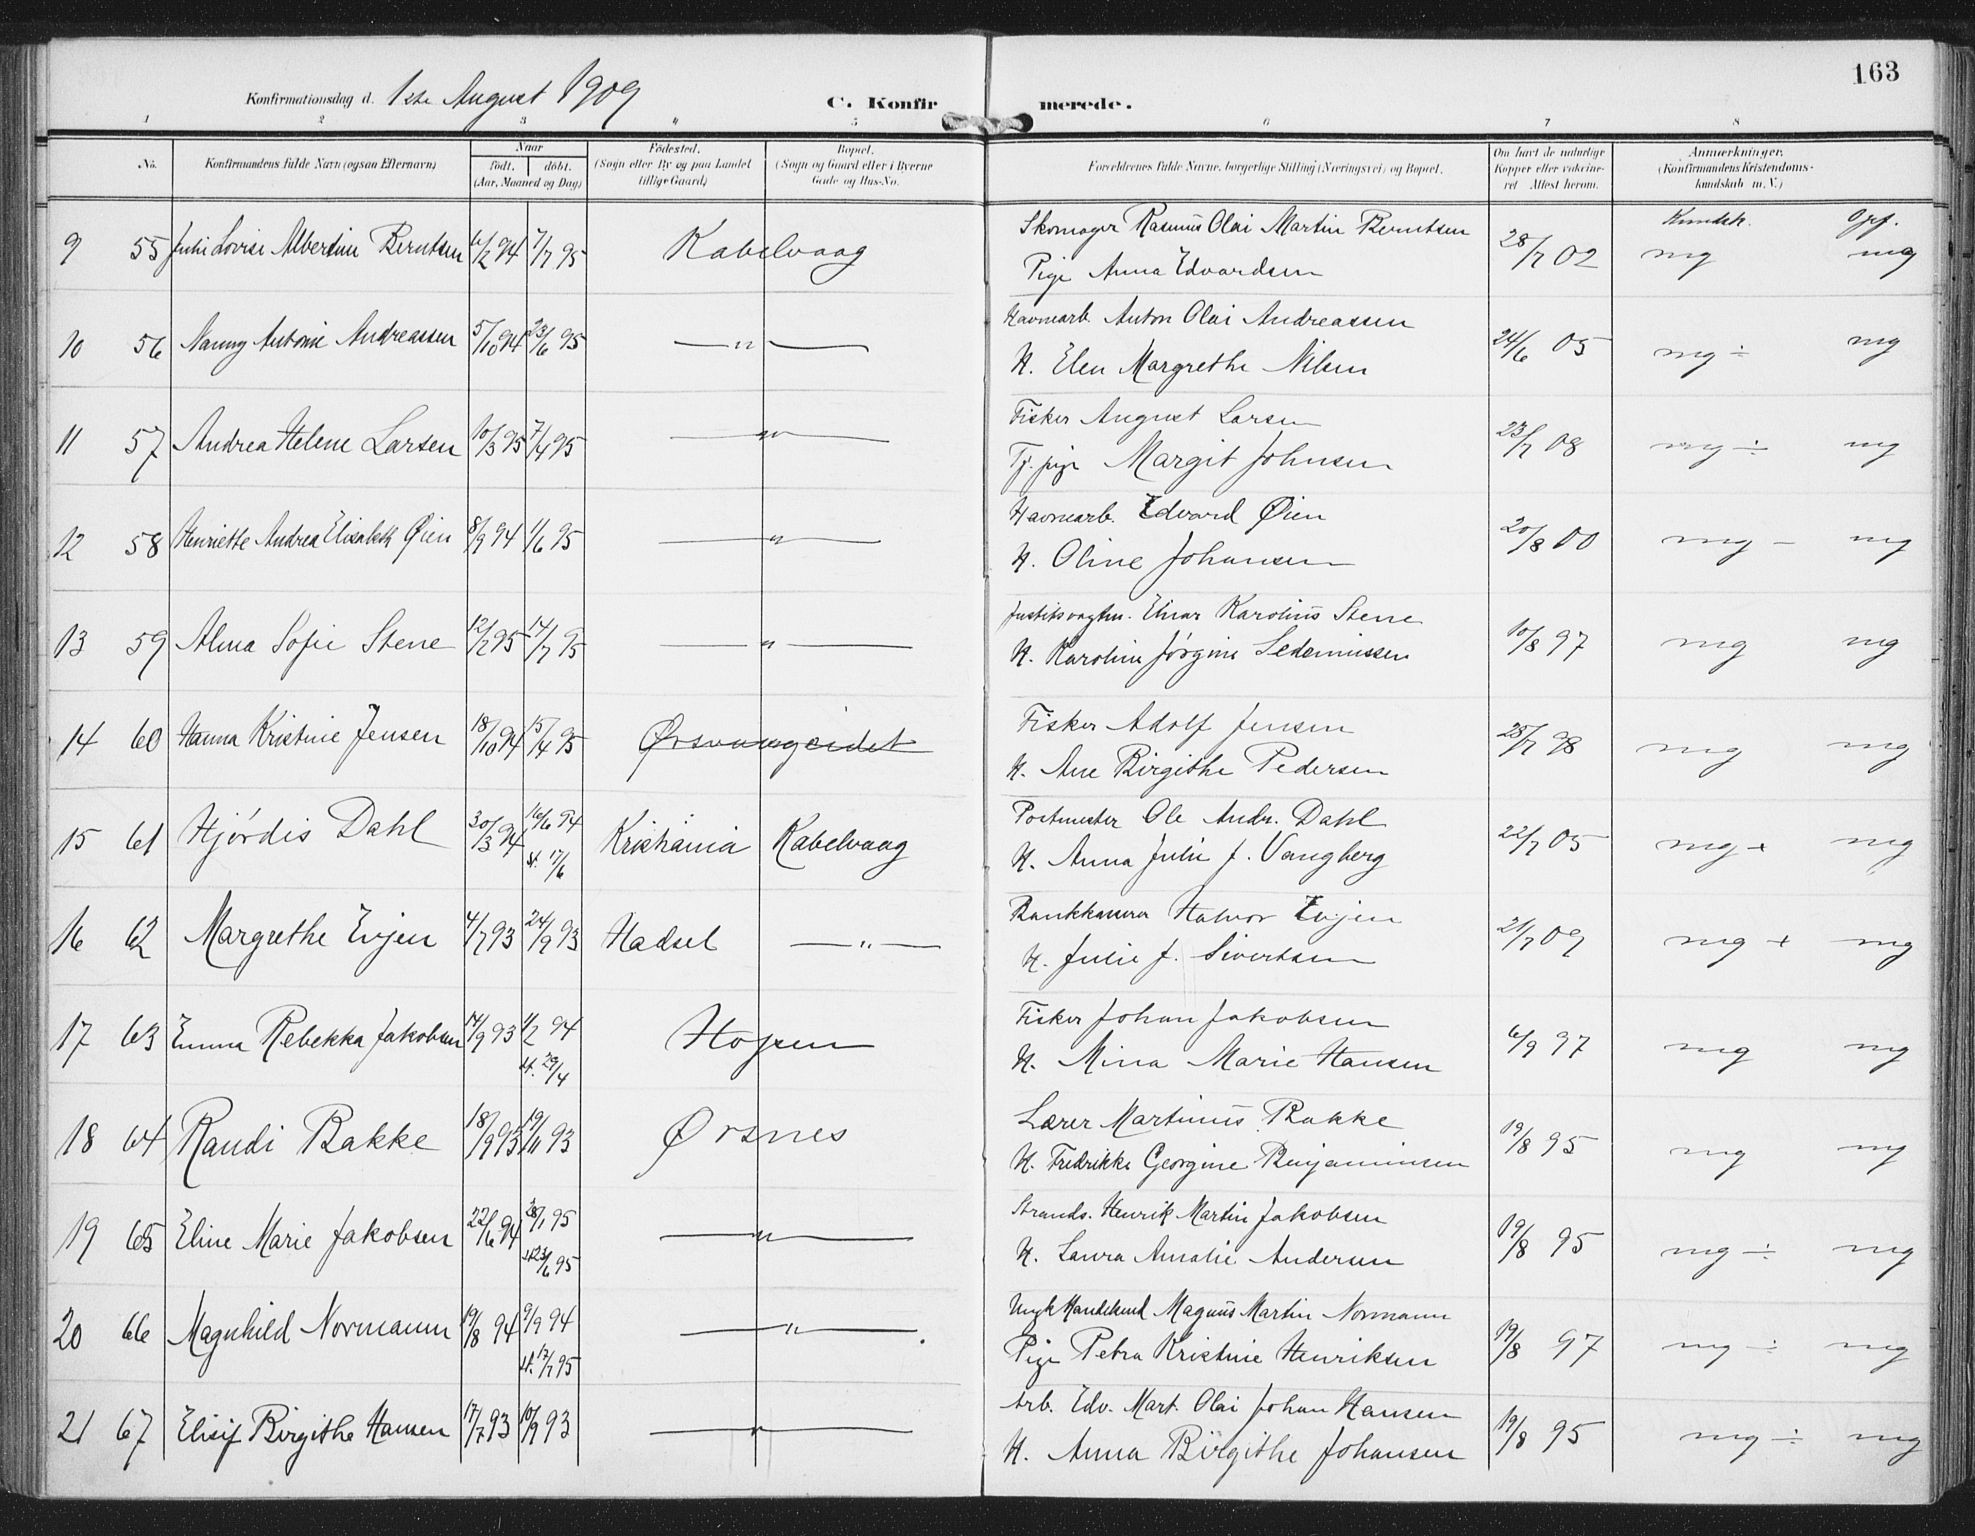 163
Konfirmationsdag d. 1ste August 1909 C. Konfirmerede.
1 2 3 4 5 6 7 8
No. Konfirmandens fulde Navn (ogsaa Efternavn) Naar født. døbt. (Aar, Maaned og Dag) Fødested. (Sogn eller By og paa Landet tillige Gaard) Bopæl. (Sogn og Gaard eller i Byerne Gade og Hus-No. Forældrenes fulde Navne, borgerlige Stilling (Næringsvei) og Bopæl. Om havt de naturlige Kopper eller vakcineret Attest herom. Anmærkninger. (Konfirmandens Kristendomskundskab m. V.)
Kundsk. Opf.
9 55 Julie Lovise Albertine Berntsen 6/2 94 7/7 95 Kabelvaag Skomager Rasmus Olai Martin Berntsen 28/7 02 mg mg
Pige Anna Edvardsen
10 56 Nanny Antonie Andreassen 5/10 94 23/6 95 — " — Havnearb. Anton Olai Andreassen 24/6 05 mg ÷ mg
H. Elen Margrethe Nilsen
11 57 Andrea Helene Larsen 10/3 95 7/4 95 — " — Fisker August Larsen 23/7 08 mg ÷ mg
Tj. pige Margit Johnsen
12 58 Henriette Andrea Elisabeth Øien 8/9 94 1/6 95 — " — Havnearb. Edvard Øien 20/8 00 mg – mg
H. Oline Johansen
13 59 Alma Sofie Stene 12/2 95 14/7 95 — " — Einar Karolius Stene 10/8 97 mg mg
H. Karoline Jørgine
14 60 Hanna Kristine Jensen 18/10 94 15/4 95 Ørsvaageidet Fisker Adolf Jensen 25/7 98 mg mg
H. Ane Birgithe Pedersen
15 61 Hjördis Dahl 30/3 94 16/6 94 st. 17/6 Kristiania Kabelvaag Postmester Ole Andr. Dahl 22/7 05 mg + mg
H. Anna Julie J. Vangberg
16 62 Margrethe Evjen 4/7 93 24/9 93 Hadsel — " — Bankkasserer Halvor Evjen 21/7 09 mg + mg
H. Julie J. Sivertsen
17 63 Emma Rebekka Jakobsen 14/9 93 11/2 94 st. 29/4 Hopen Fisker Johan Jakobsen 6/9 97 mg mg
H. Mina Marie Hansen
18 64 Randi Bakke 18/9 93 19/11 93 Ørsnes Lærer Martinus Bakke 19/8 95 mg mg
H. Fredrikke Georgine Benjaminsen
19 65 Eline Marie Jakobsen 22/6 94 28/1 95 st. 23/6 95 — " — Strands. Henrik Martin Jakobsen 19/8 95 mg ÷ mg
H. Laura Amalie Andersen
20 66 Magnhild Normann 19/8 94 9/9 94 st. 17/7 95 — " — Ungk Handelsmd Magnus Martin Normann 19/8 97 mg ÷ mg
Pige Petra Kristine Henriksen
21 67 Elisif Birgithe Hansen 17/7 93 10/9 93 — " — Arb. Edv. Mart. Olai Johan Hansen 19/8 95 mg ÷ mg
H. Anna Birgithe Johansen